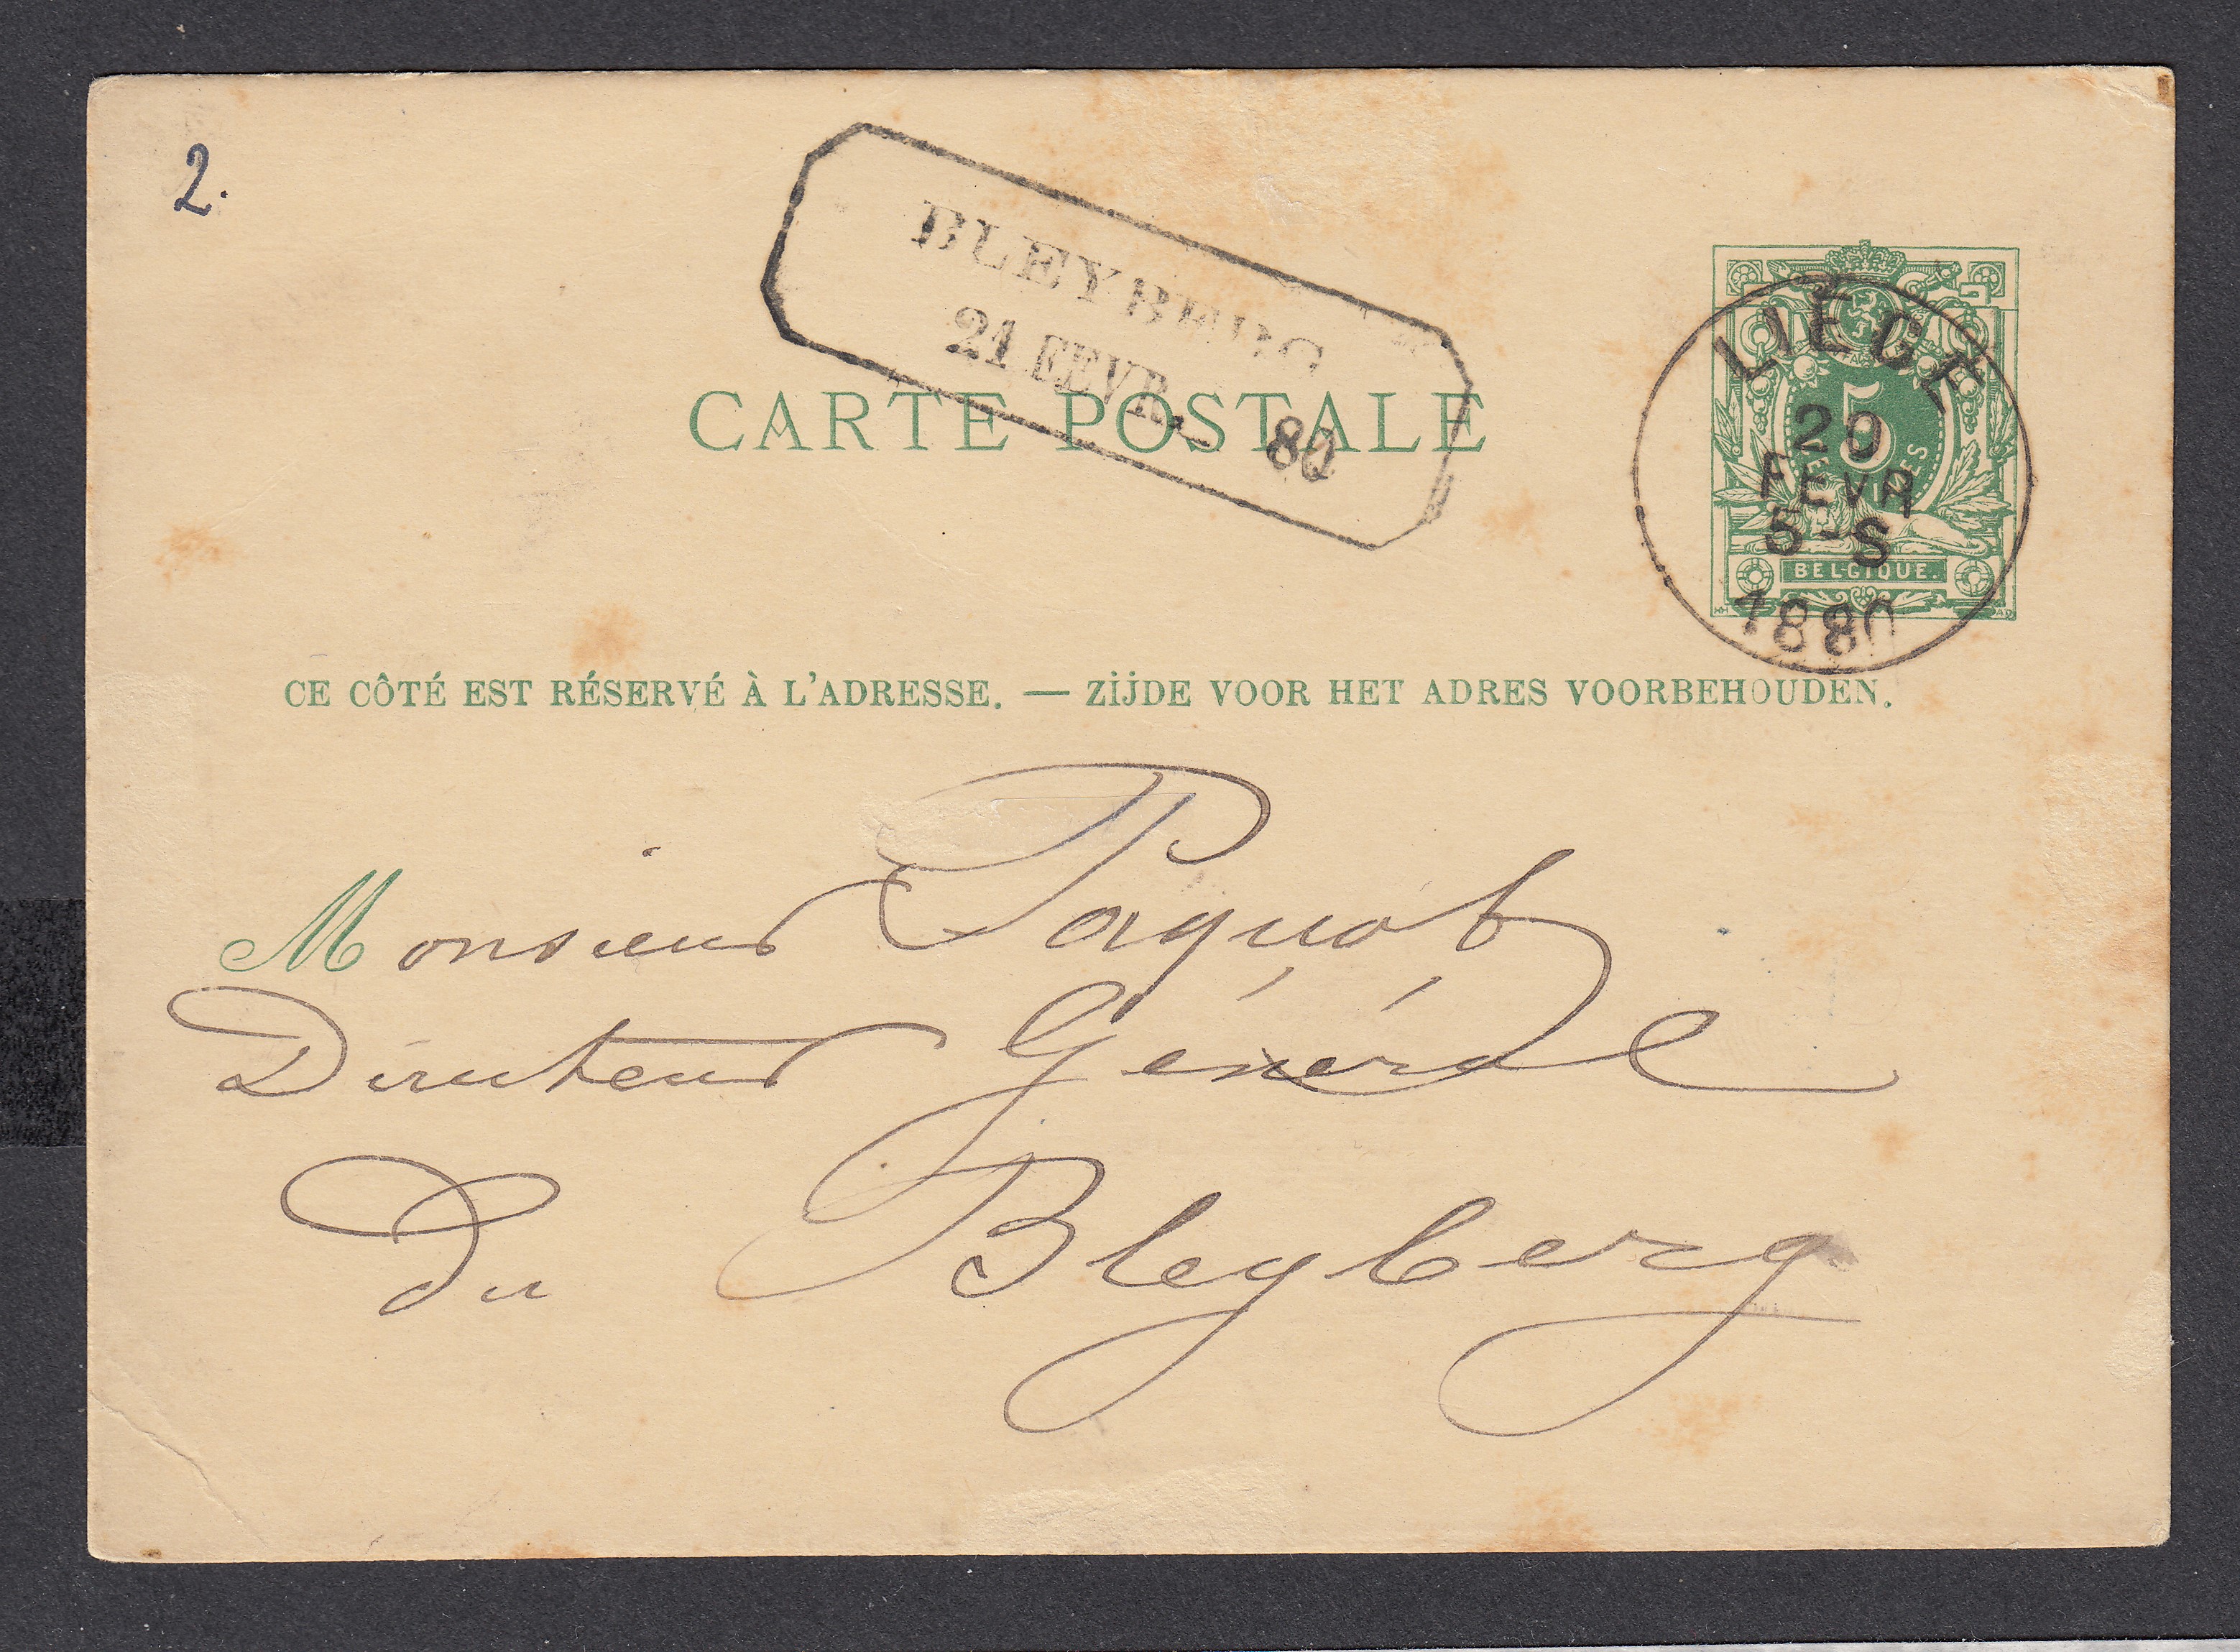 2.
BLEYBERG
21 FEVR. 80
CARTE POSTALE
LIEGE
20
FEVR
5-S
1880
5
BELGIQUE.
CE CÔTÉ EST RÉSERVÉ À L'ADRESSE. — ZIJDE VOOR HET ADRES VOORBEHOUDEN.
Monsieur Paquot
Directeur Général
du Bleyberg